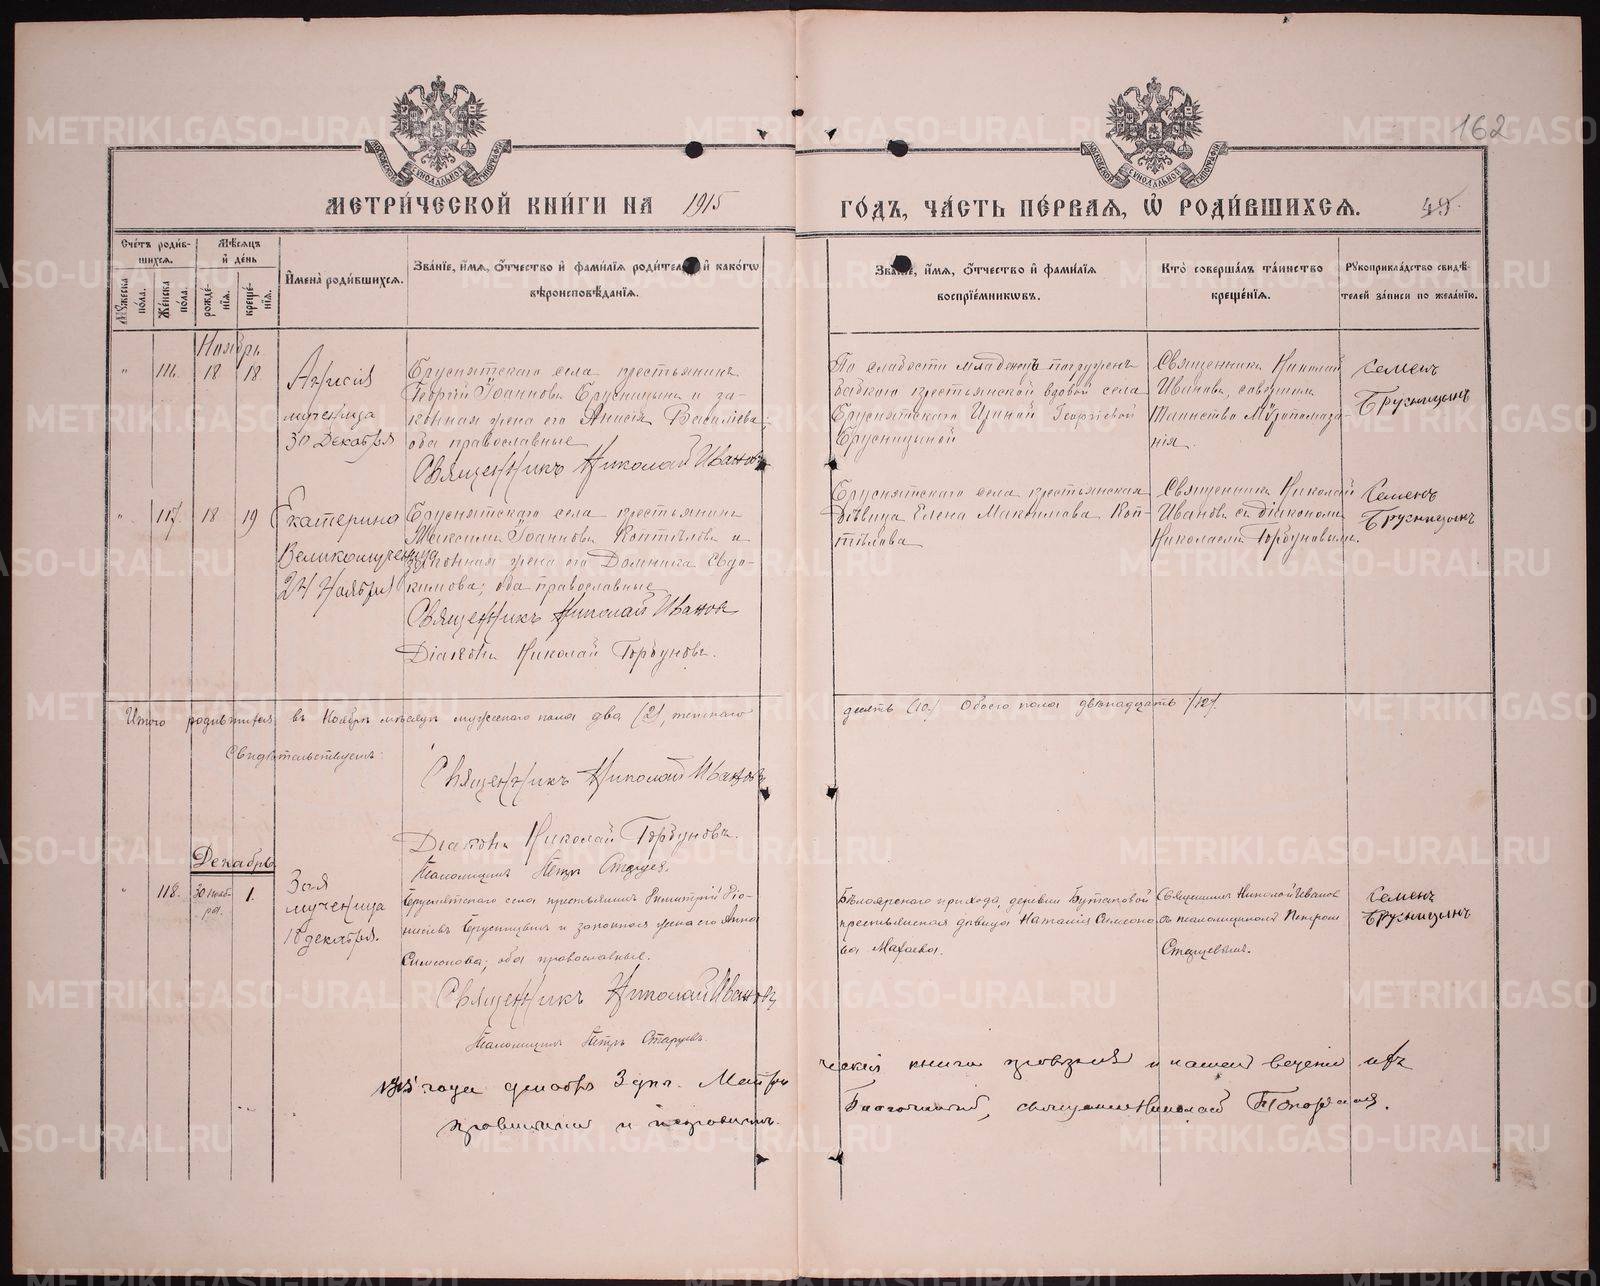 162
МЕТРИ́ЧЕСКОЙ КНИ́ГИ НА 1915 ГО́ДЪ, ЧА́СТЬ ПЕ́РВАЯ, Ѽ РОДИ́ВШИХСЯ.
49.
Сче́тъ роди́в-
шихся.
Му́жеска по́ла.
Же́нска по́ла.
Мѣ́сяцъ
и҆ де́нь
рожде́-
нїя.
креще́-
нїя.
И҆мена̀ роди́вшихся.
Зва́нїе, и҆́мя, ѻ҆́тчество и҆ фами́лїя роди́телей и҆ како́гѡ
вѣроисповѣ́данїя.
Зва́нїе, и҆́мя, ѻ҆́тчество и҆ фами́лїя
воспрїе́мникѡвъ.
Кто̀ соверша́лъ та́инство
креще́нїя.
Рꙋкоприкла́дство свидѣ́-
телей за́писи по жела́нїю.
Ноябрь
" 116. 18 18
Анисія
мученица
30 Декабря
Бруснятскаго села крестьянинъ
Георгій Іоанновъ Брусницынъ и за-
конная жена его Анисія Васильева;
оба православные
Священникъ Николай Ивановъ
По слабости младенецъ погруженъ
бабкою крестьянской вдовой села
Бруснятскаго Ириной Георгіевой
Брусницыной
Священникъ Николай
Ивановъ, совершилъ
Таинство Мѵропомаза-
нія.
Семенъ
Брукницынъ
" 117 18 19
Екатерина
Великомученица
24 Ноября
Бруснятскаго села крестьянинъ
Максимъ Іоанновъ Коптѣловъ и
законная жена его Домника Евдо-
кимова; оба православные
Священникъ Николай Ивановъ
Діаконъ Николай Горбуновъ.
Бруснятскаго села крестьянская
дѣвица Елена Максимова Коп-
тѣлова
Священникъ Николай
Ивановъ съ діакономъ
Николаемъ Горбуновымъ.
Семенъ
Брукницынъ
Итого родившихся въ Ноябрѣ мѣсяцѣ мужескаго пола два (2), женскаго десять (10) Обоего пола двѣнадцать (12).
Свидѣтельствуемъ:
Священникъ Николай Ивановъ
Діаконъ Николай Горбуновъ.
Псаломщикъ Петръ Старцевъ.
Декабрь
" 118. 30 нояб-
ря. 1.
Зоя
мученица
18 декабря.
Бруснятскаго села крестьянинъ Димитрій Діо-
нисіевъ Брусницынъ и законная жена его Анна
Симеонова; оба православные.
Священникъ Николай Ивановъ
Псаломщикъ Петръ Старцевъ.
Бѣлоярскаго прихода, деревни Бутаковой
крестьянская дѣвица Наталія Симеоно-
ва Махаева.
Священникъ Николай Ивановъ
съ псаломщикомъ Петромъ
Старцевымъ.
Семенъ
Брукницынъ
1915 года декабря 3 дня. Метри
ческія книги
Благочинный, священникъ Николай
METRIKI.GASO-URAL.RU